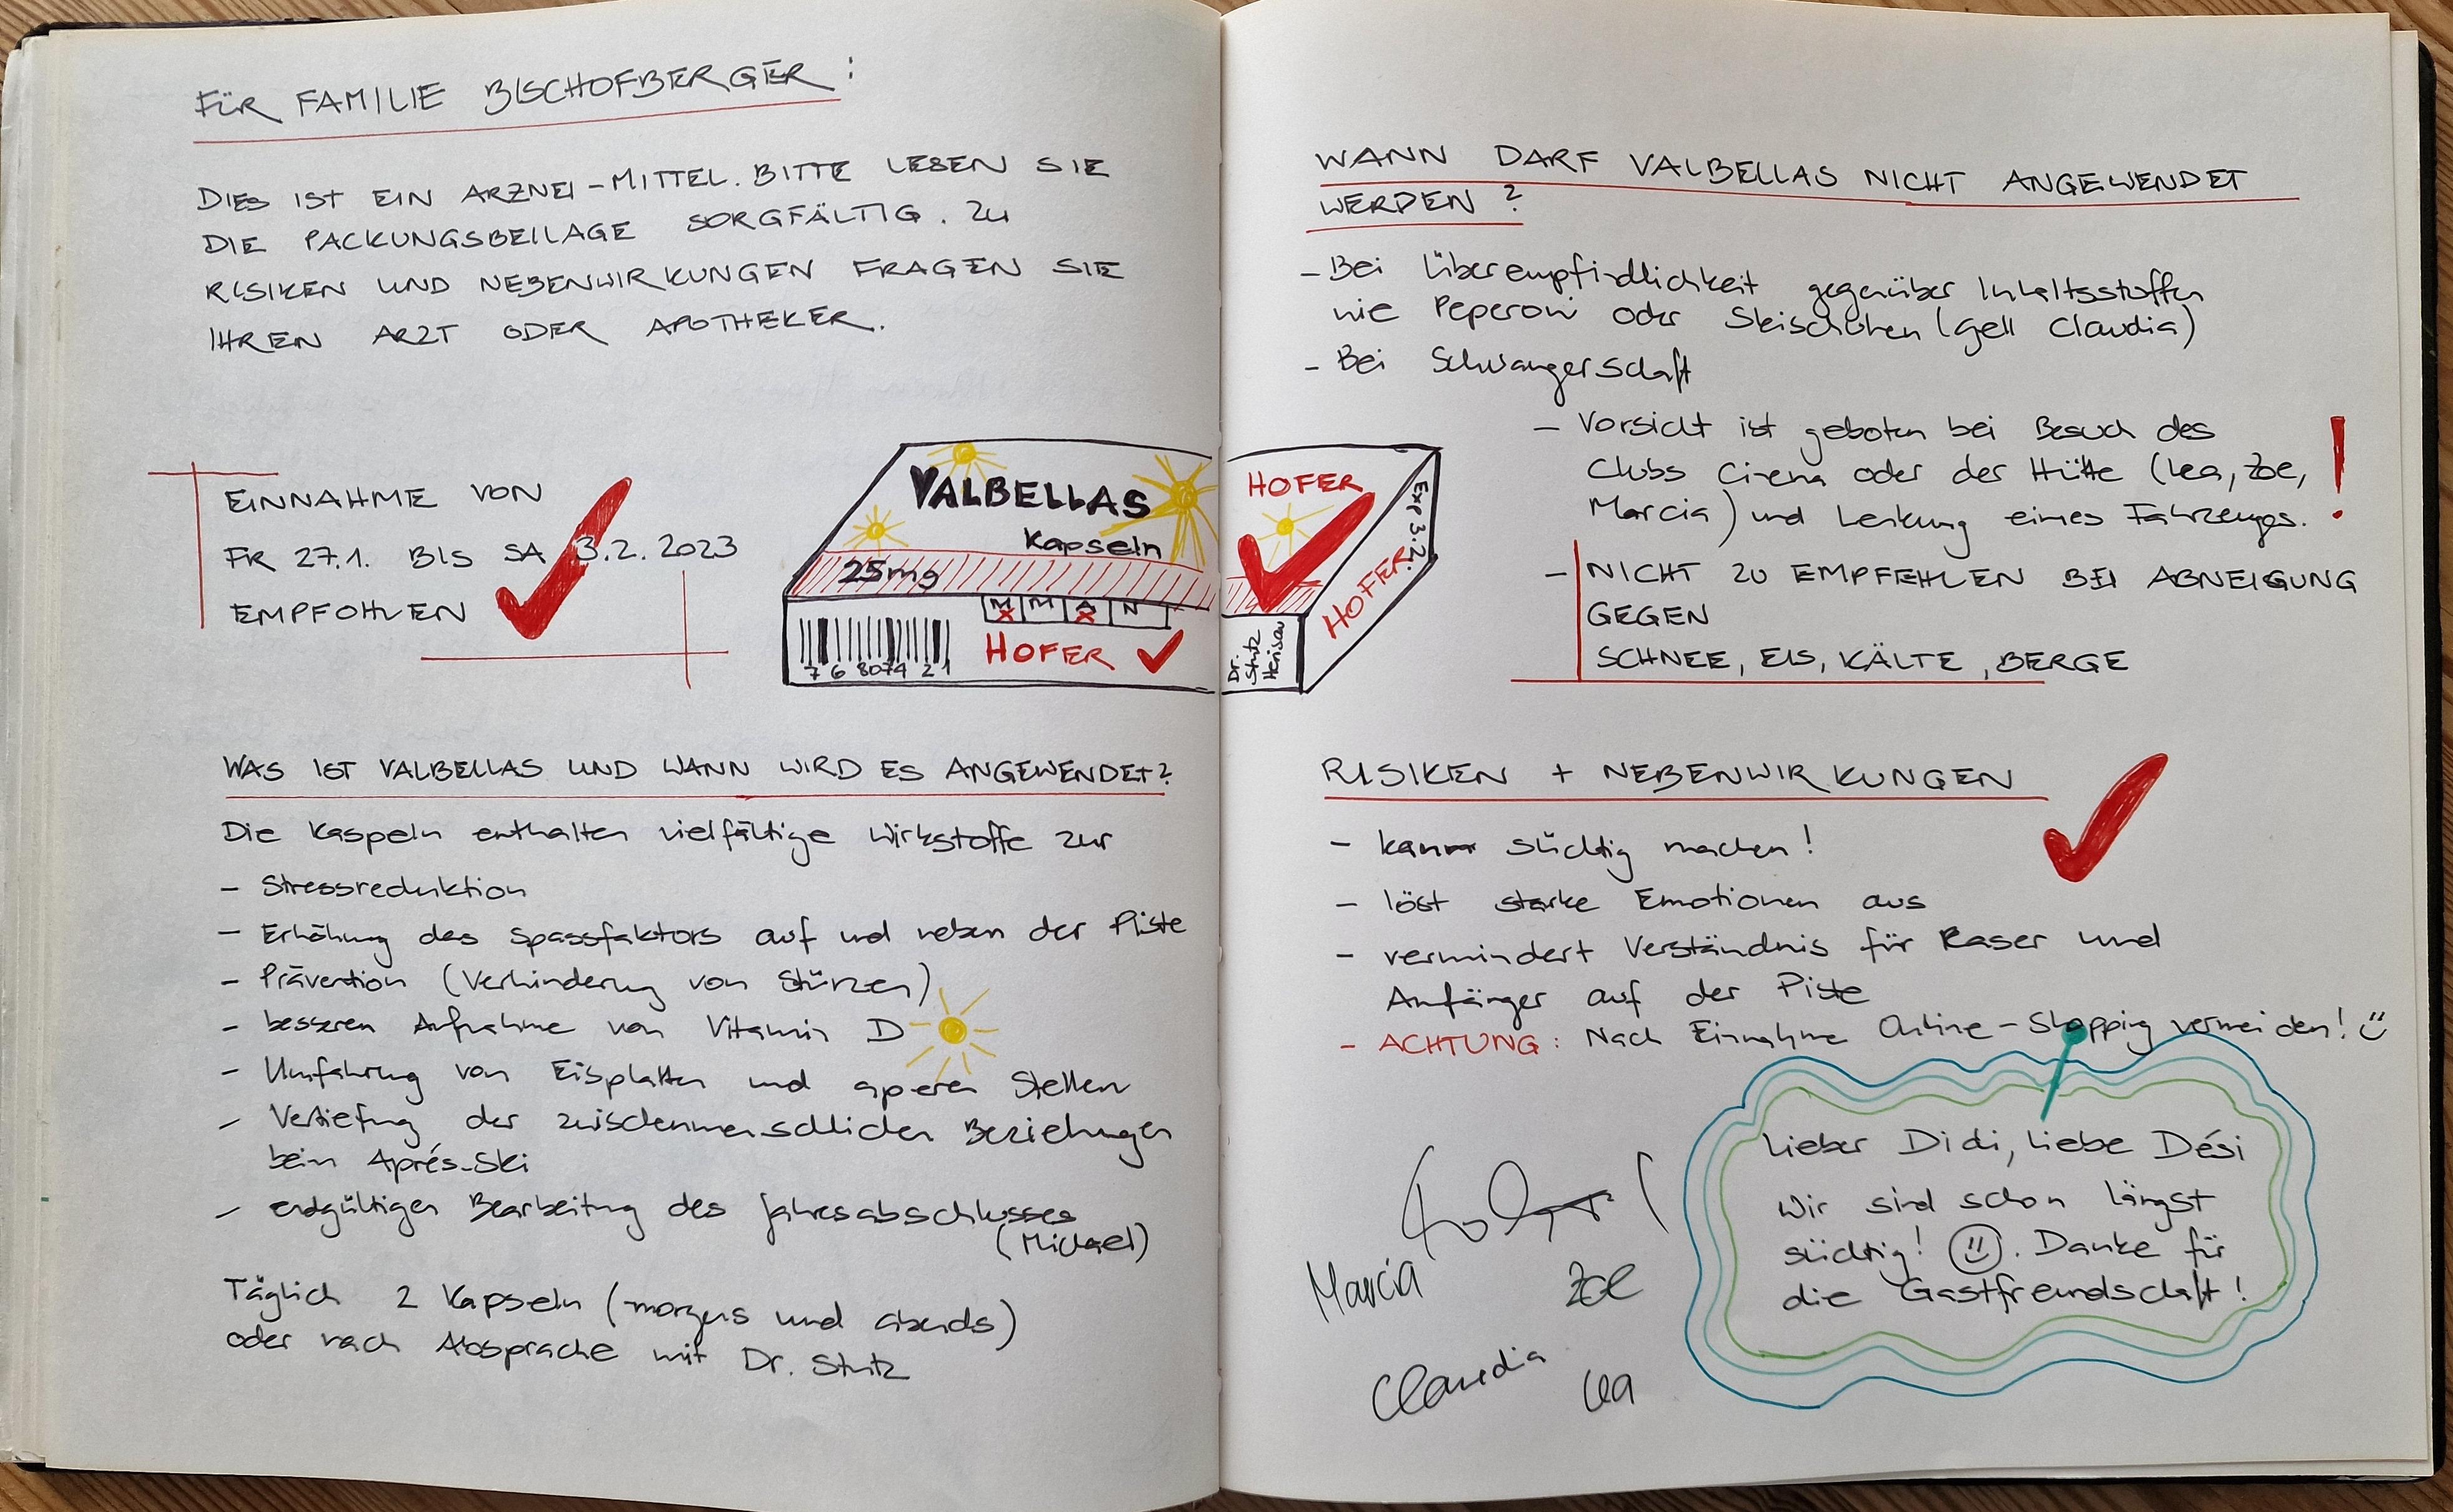 FÜR FAMILIE BISCHOFBERGER:
DIES IST EIN ARZNEI-MITTEL. BITTE LESEN SIE
DIE PACKUNGSBEILAGE SORGFÄLTIG. ZU
RISIKEN UND NEBENWIRKUNGEN FRAGEN SIE
IHREN ARZT ODER APOTHEKER.
EINNAHME VON
FR 27.1. BIS SA 3.2.2023
EMPFOHLEN
VALBELLAS
Kapseln
25mg
M M A N
7 6 8074 21
HOFER
HOFER
Exp 3.2.
HOFER
Dr.
Stutz
Herisau
WAS IST VALBELLAS UND WANN WIRD ES ANGEWENDET?
Die Kaspeln enthalten vielfältige Wirkstoffe zur
- Stressreduktion
- Erhöhung des Spassfaktors auf und neben der Piste
- Prävention (Verhinderung von Stürzen)
- besseren Aufnahme von Vitamin D
- Umfahrung von Eisplatten und aperen Stellen
- Vertiefung der zwischenmenschlichen Beziehungen
beim Après-Ski
- endgültigen Bearbeitung des Jahresabschlusses
(Michael)
Täglich 2 Kapseln (morgens und abends)
oder nach Absprache mit Dr. Stutz
WANN DARF VALBELLAS NICHT ANGEWENDET
WERDEN?
- Bei Überempfindlichkeit gegenüber Inhaltsstoffen
wie Peperoni oder Skischuhen (gell Claudia)
- Bei Schwangerschaft
- Vorsicht ist geboten bei Besuch des
Clubs Cinema oder der Hütte (Lea, Zoe,
Marcia) und Lenkung eines Fahrzeuges. !
- NICHT ZU EMPFEHLEN BEI ABNEIGUNG
GEGEN
SCHNEE, EIS, KÄLTE, BERGE
RISIKEN + NEBENWIRKUNGEN
- kann süchtig machen!
- löst starke Emotionen aus
- vermindert Verständnis für Raser und
Anfänger auf der Piste
- ACHTUNG: Nach Einnahme Online-Shopping vermeiden!
Marcia Zoe
Claudia Lea
Lieber Didi, liebe Dési
Wir sind schon längst
süchtig! Danke für
die Gastfreundschaft!